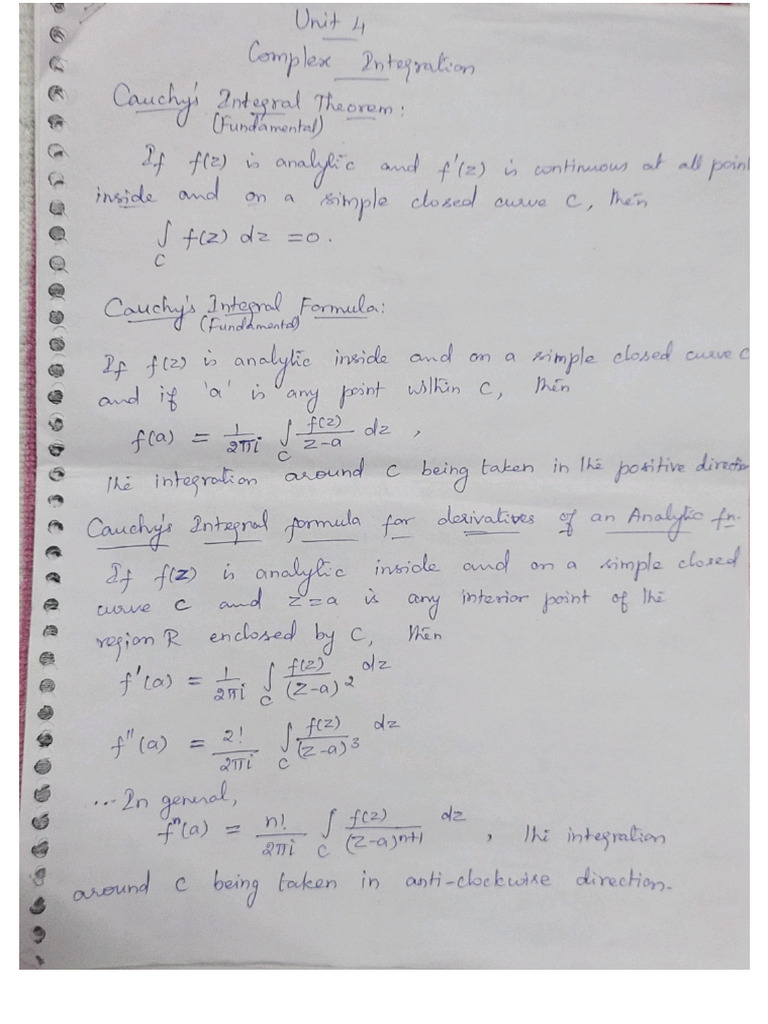 Unit 4
Complex Integration
Cauchy's Integral Theorem:
(Fundamental)
If f(z) is analytic and f'(z) is continuous at all poin
inside and on a simple closed curve C, then
∫_C f(z) dz = 0.
Cauchy's Integral Formula:
(Fundamental)
If f(z) is analytic inside and on a simple closed curve C
and if 'a' is any point within C, then
f(a) = 1/2πi ∫_C f(z)/z-a dz ,
the integration around C being taken in the positive directio
Cauchy's Integral formula for derivatives of an Analytic fn.
If f(z) is analytic inside and on a simple closed
curve C and z=a is any interior point of the
region R enclosed by C, then
f'(a) = 1/2πi ∫_C f(z)/(z-a)^2 dz
f''(a) = 2!/2πi ∫_C f(z)/(z-a)^3 dz
... In general,
f^n(a) = n!/2πi ∫_C f(z)/(z-a)^n+1 dz , the integration
around C being taken in anti-clockwise direction.